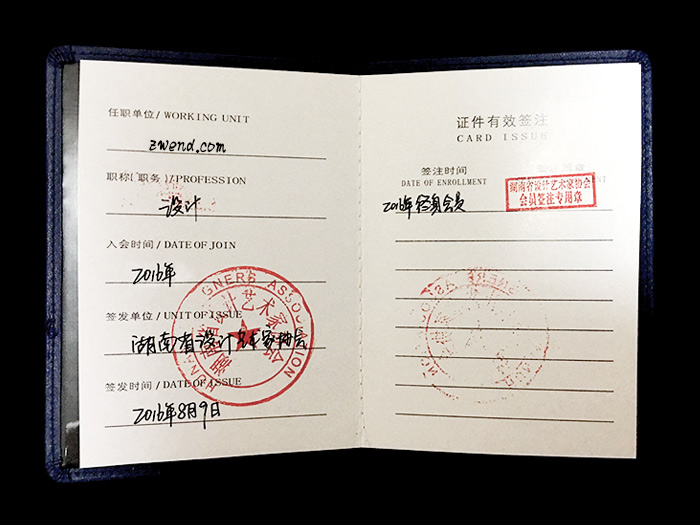 任职单位/WORKING UNIT
zwend.com
职称(职务)/PROFESSION
设计
入会时间/DATE OF JOIN
2016年
签发单位/UNIT OF ISSUE
湖南省设计艺术家协会
签发时间/DATE OF ISSUE
2016年8月9日
证件有效签注
CARD ISSUE
签注时间
DATE OF ENROLLMENT
2016年终身会员
湖南省设计艺术家协会
会员签注专用章